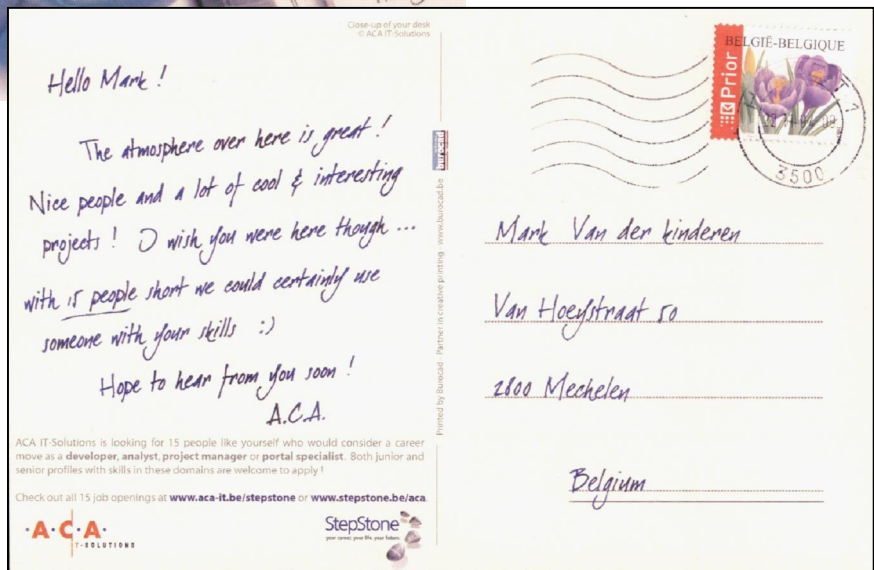 Close-up of your desk
© ACA IT-Solutions
Hello Mark !
The atmosphere over here is great !
Nice people and a lot of cool & interesting
projects ! I wish you were here though ...
with 15 people short we could certainly use
someone with your skills :)
Hope to hear from you soon !
A.C.A.
ACA IT-Solutions is looking for 15 people like yourself who would consider a career
move as a developer, analyst, project manager or portal specialist. Both junior and
senior profiles with skills in these domains are welcome to apply !
Check out all 15 job openings at www.aca-it.be/stepstone or www.stepstone.be/aca.
·A·C·A·
IT-SOLUTIONS
StepStone
your career, your life, your future.
Printed by Burocad - Partner in creative printing - www.burocad.be
burocad
BELGIË-BELGIQUE
Prior
3500
Mark Van der kinderen
Van Hoeystraat 50
2800 Mechelen
Belgium